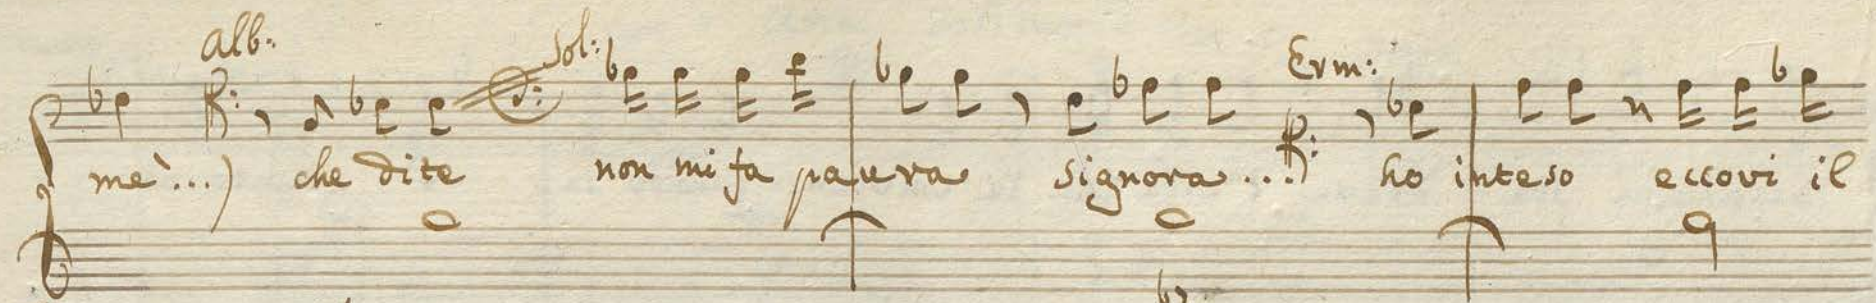 Alb: Sol: Erm:
me'...) che dite non mi fa paura signora...) ho inteso eccovi il